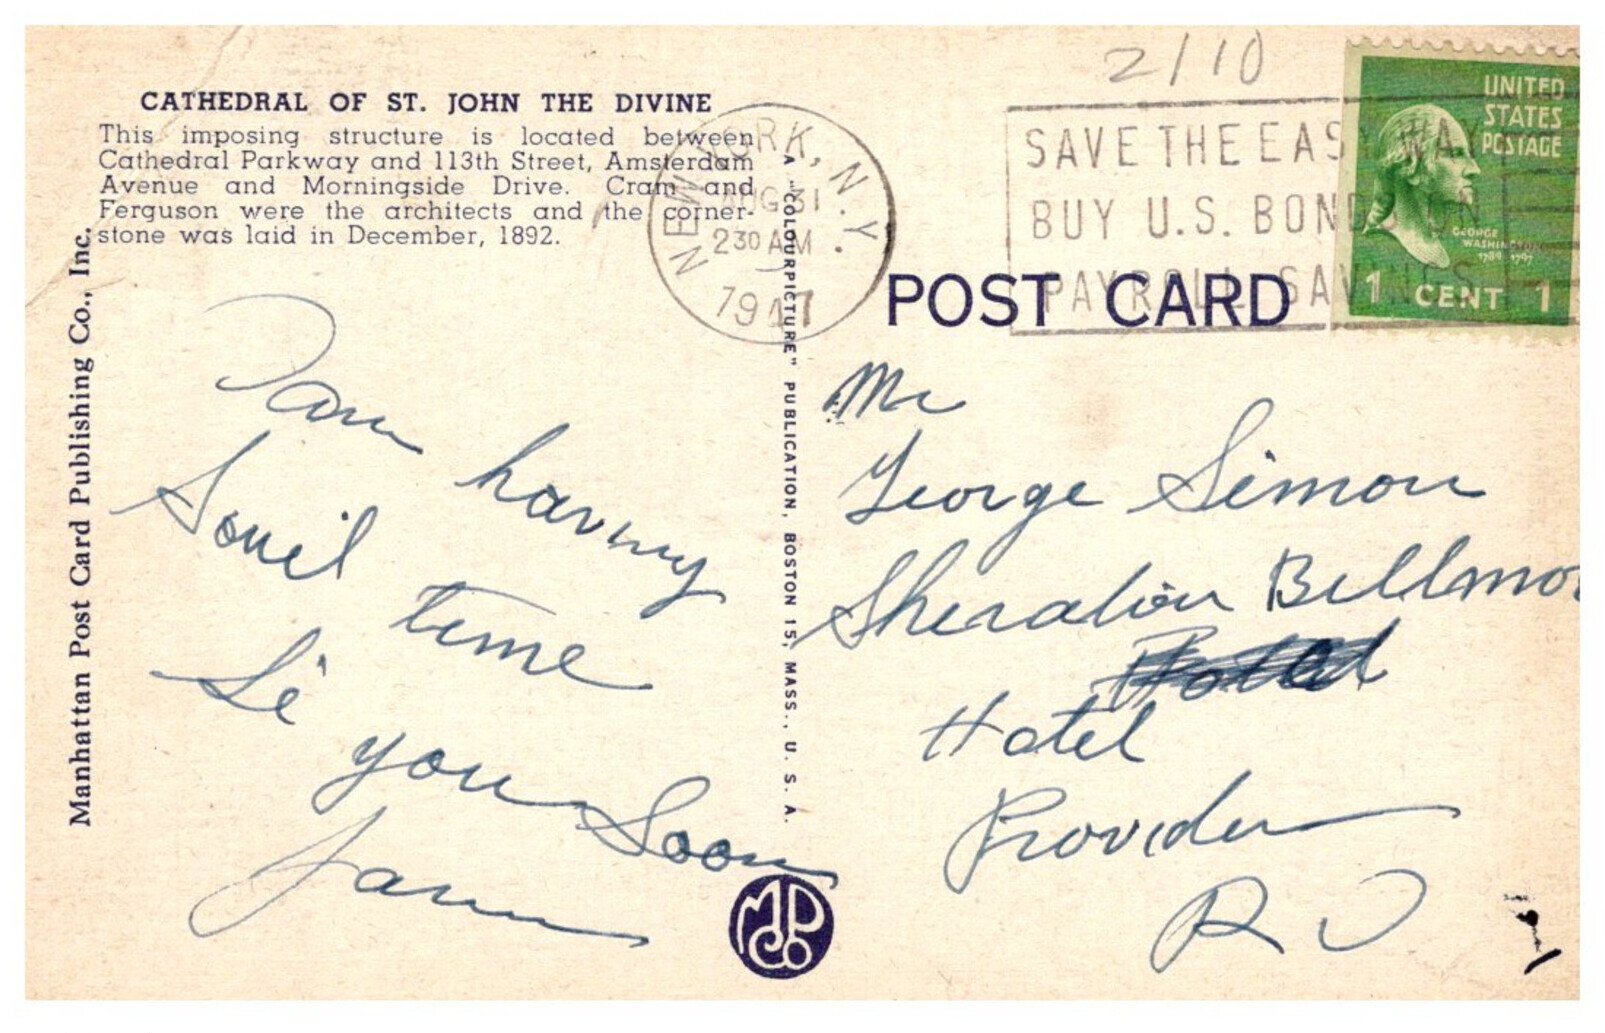 2/10
CATHEDRAL OF ST. JOHN THE DIVINE
This imposing structure is located between
Cathedral Parkway and 113th Street, Amsterdam
Avenue and Morningside Drive. Cram and
Ferguson were the architects and the corner-
stone was laid in December, 1892.
Manhattan Post Card Publishing Co., Inc.
A "COLOURPICTURE" PUBLICATION, BOSTON 15, MASS., U. S. A.
NEW YORK, N.Y.
AUG 31
2 30 AM
1947
SAVE THE EASY WAY
BUY U.S. BONDS ON
PAYROLL SAVINGS
UNITED
STATES
POSTAGE
GEORGE
WASHINGTON
1789 1797
1 CENT 1
POST CARD
having
time
you Soon
Mr
George Simon
Sheraton Bellmor
Hotel
R I
MPC Co